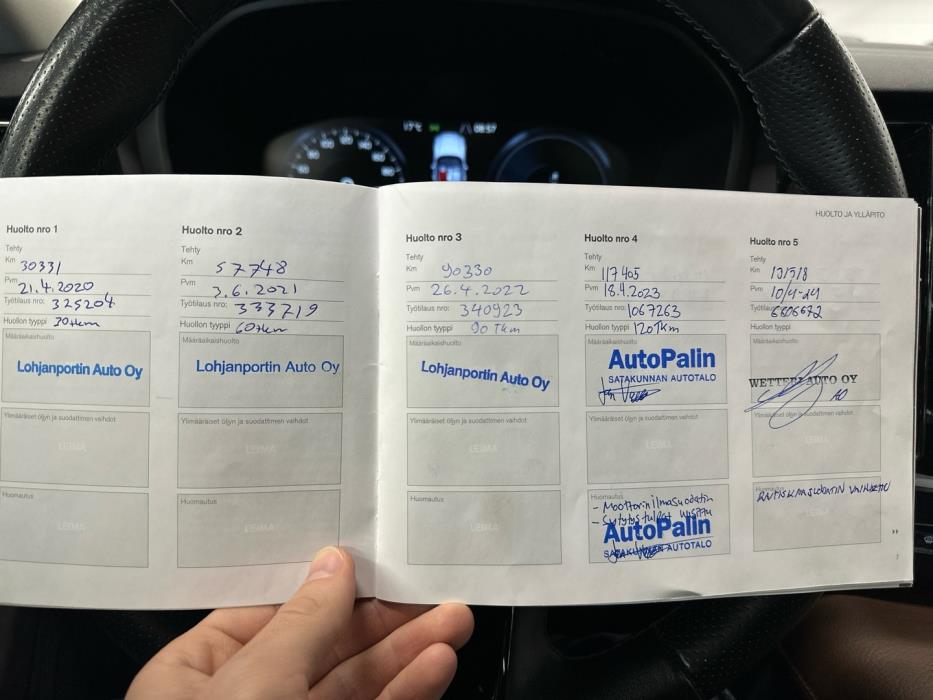 17°C
08:57
HUOLTO JA YLLÄPITO
Huolto nro 1
Tehty
Km 30331
Pvm 21.4.2020
Työtilaus nro: 325204
Huollon tyyppi 30tkm
Määräaikaishuolto
Lohjanportin Auto Oy
Ylimääräiset öljyn ja suodattimen vaihdot
LEIMA
Huomautus
LEIMA
Huolto nro 2
Tehty
Km 57748
Pvm 3.6.2021
Työtilaus nro: 333719
Huollon tyyppi 60tkm
Määräaikaishuolto
Lohjanportin Auto Oy
Ylimääräiset öljyn ja suodattimen vaihdot
LEIMA
Huomautus
LEIMA
Huolto nro 3
Tehty
Km 90330
Pvm 26.4.2022
Työtilaus nro: 340923
Huollon tyyppi 90 Tkm
Määräaikaishuolto
Lohjanportin Auto Oy
Ylimääräiset öljyn ja suodattimen vaihdot
LEIMA
Huomautus
LEIMA
Huolto nro 4
Tehty
Km 117405
Pvm 18.4.2023
Työtilaus nro: 1067263
Huollon tyyppi 120Tkm
Määräaikaishuolto
AutoPalin
SATAKUNNAN AUTOTALO
Ylimääräiset öljyn ja suodattimen vaihdot
LEIMA
Huomautus
- Moottorinilmasuodatin
- Sytytystulpat
AutoPalin
SATAKUNNAN AUTOTALO
Huolto nro 5
Tehty
Km
Pvm 10/4-24
Työtilaus nro: 6606672
Huollon tyyppi
Määräaikaishuolto
WETTERI AUTO OY
Ylimääräiset öljyn ja suodattimen vaihdot
LEIMA
Huomautus
LEIMA
7